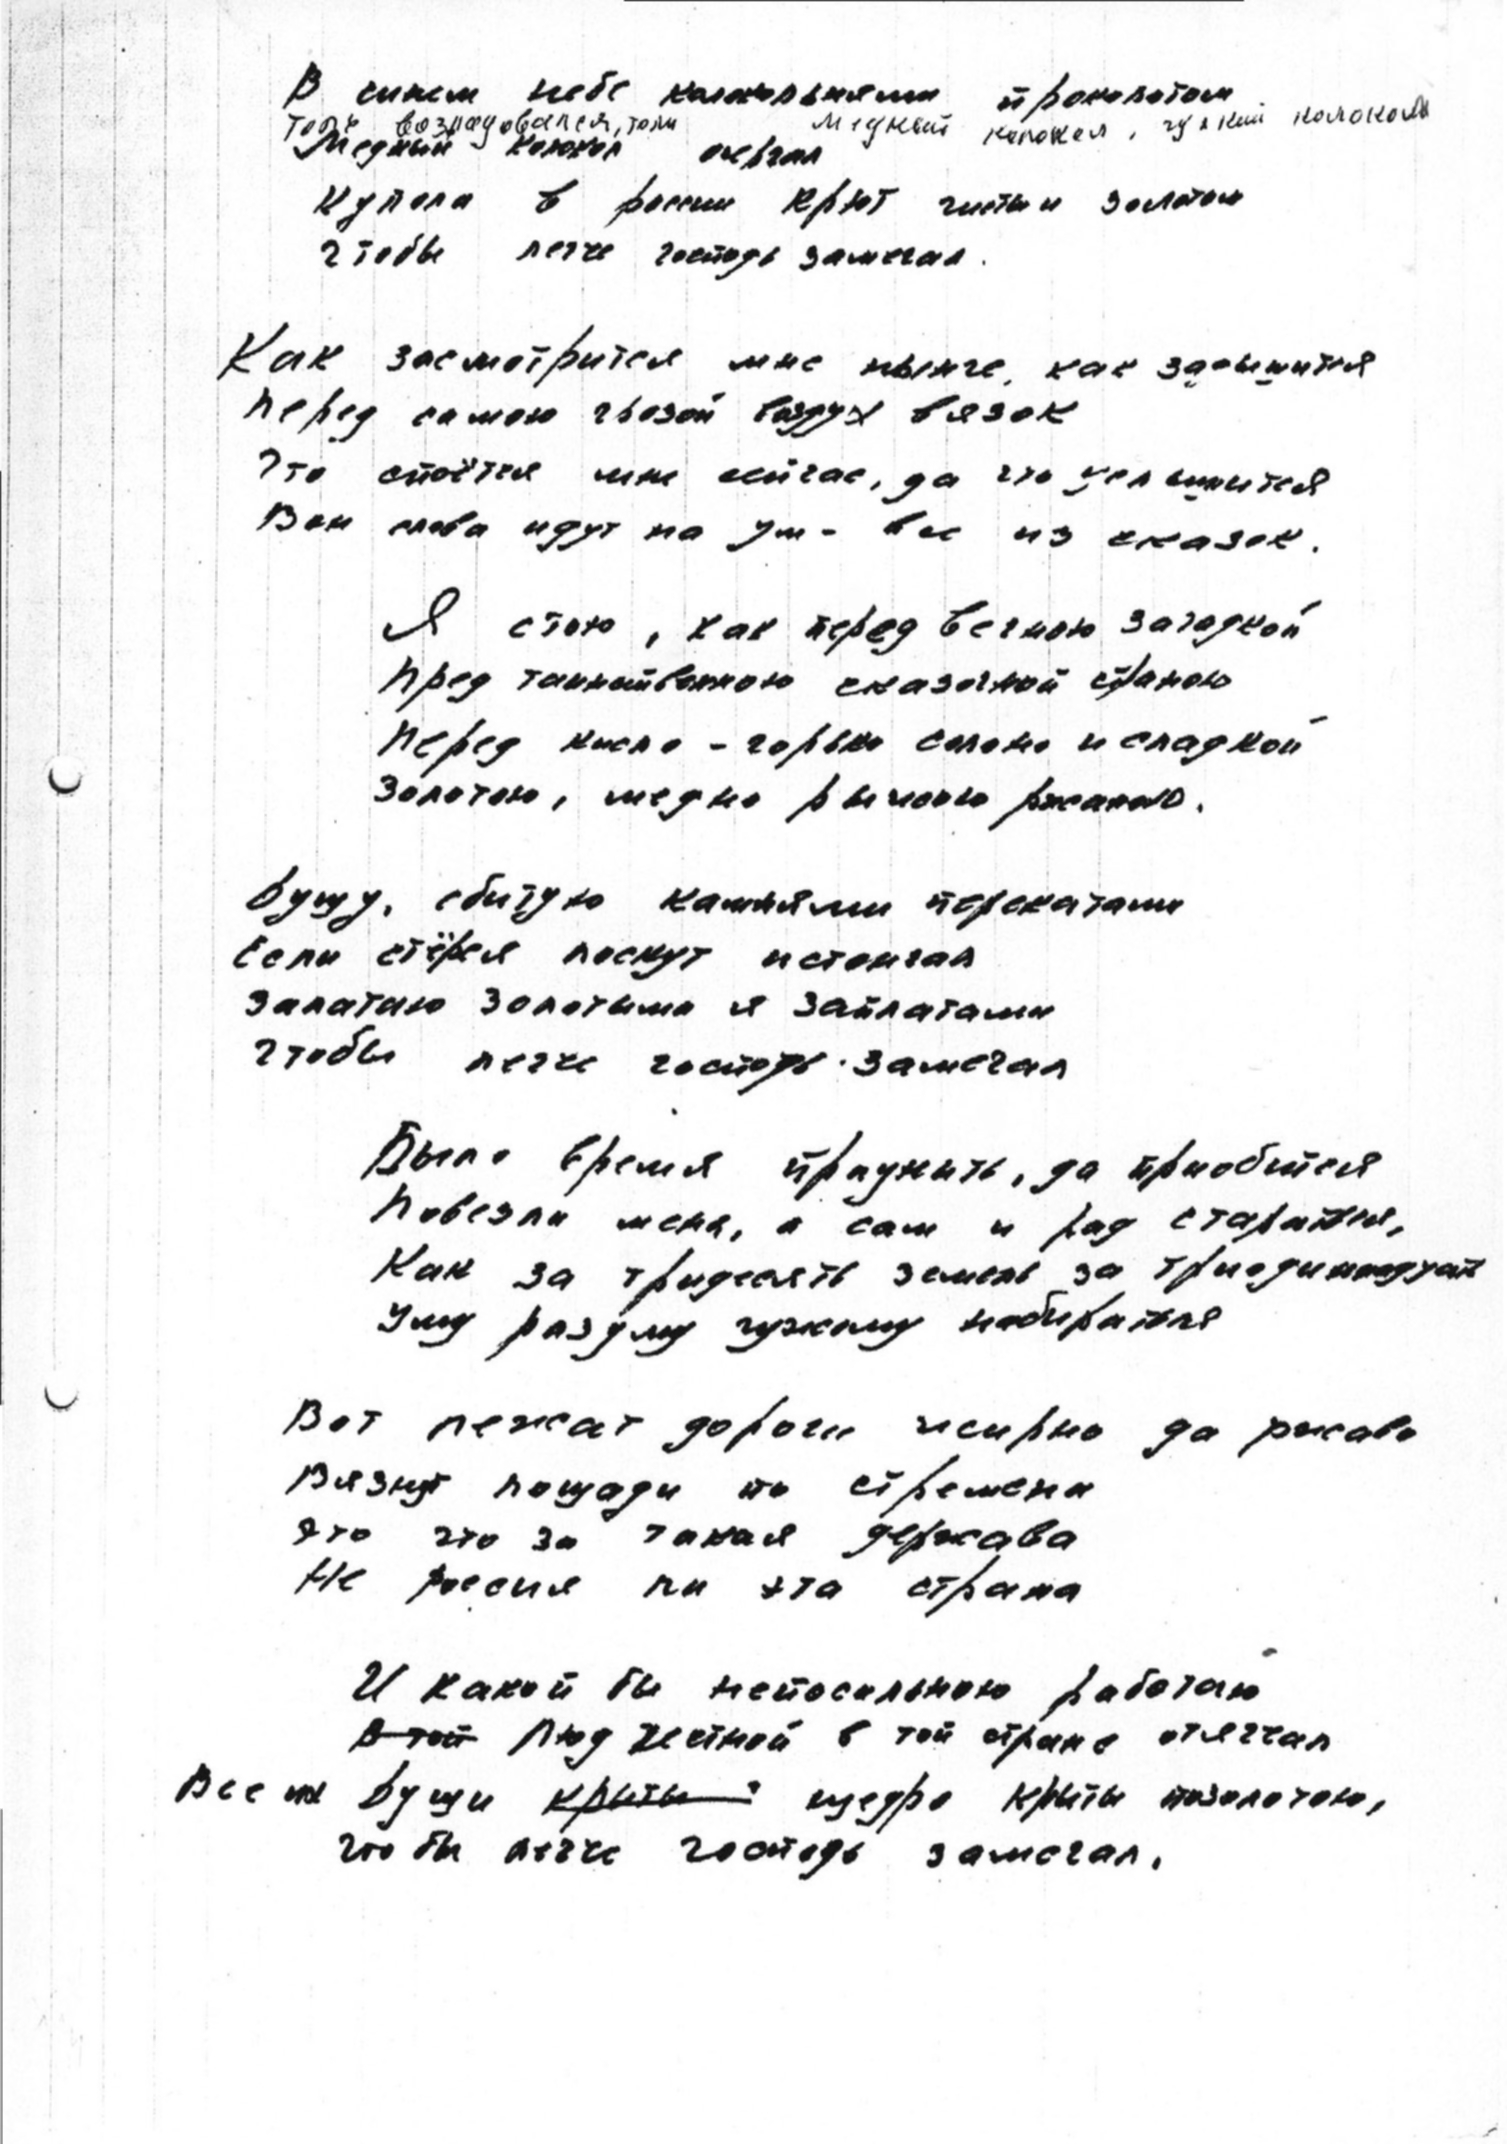 В синем небе колокольнями проколотом
Толи возрадовался, толи Медный колокол, гулкий колокол
Медный колокол осерчал
Купола в россии кроют чистым золотом
Чтобы легче господь замечал.
Как засмотрится мне нынче, как задышится
Перед самою грозой воздух вязок
Что споётся мне сейчас, да что услышится
Вон слова идут на ум - все из сказок.
Я стою, как перед вечною загадкой
Пред таинственною сказочной страною
Перед кисло - горько солоно и сладкой
Золотою, медно рыжею ржаною.
Душу, сбитую камнями перекатами
Если стёрся лоскут истончал
Залатаю золотыми я заплатами
Чтобы легче господь замечал
Было время приужить, да приобиться
Повезли меня, а сам и рад стараться,
Как за тридесять земель за триодиннадцать
Уму разуму чужому набираться
Вот лежат дороги жирно да ржаво
Вязнут лошади по стремена
Это что за такая держава
Не Россия ли эта страна
И какой бы непосильною работаю
В той Люд честной в той стране отягчал
Все их души крыты щедро крыты позолотою,
что бы легче господь замечал.